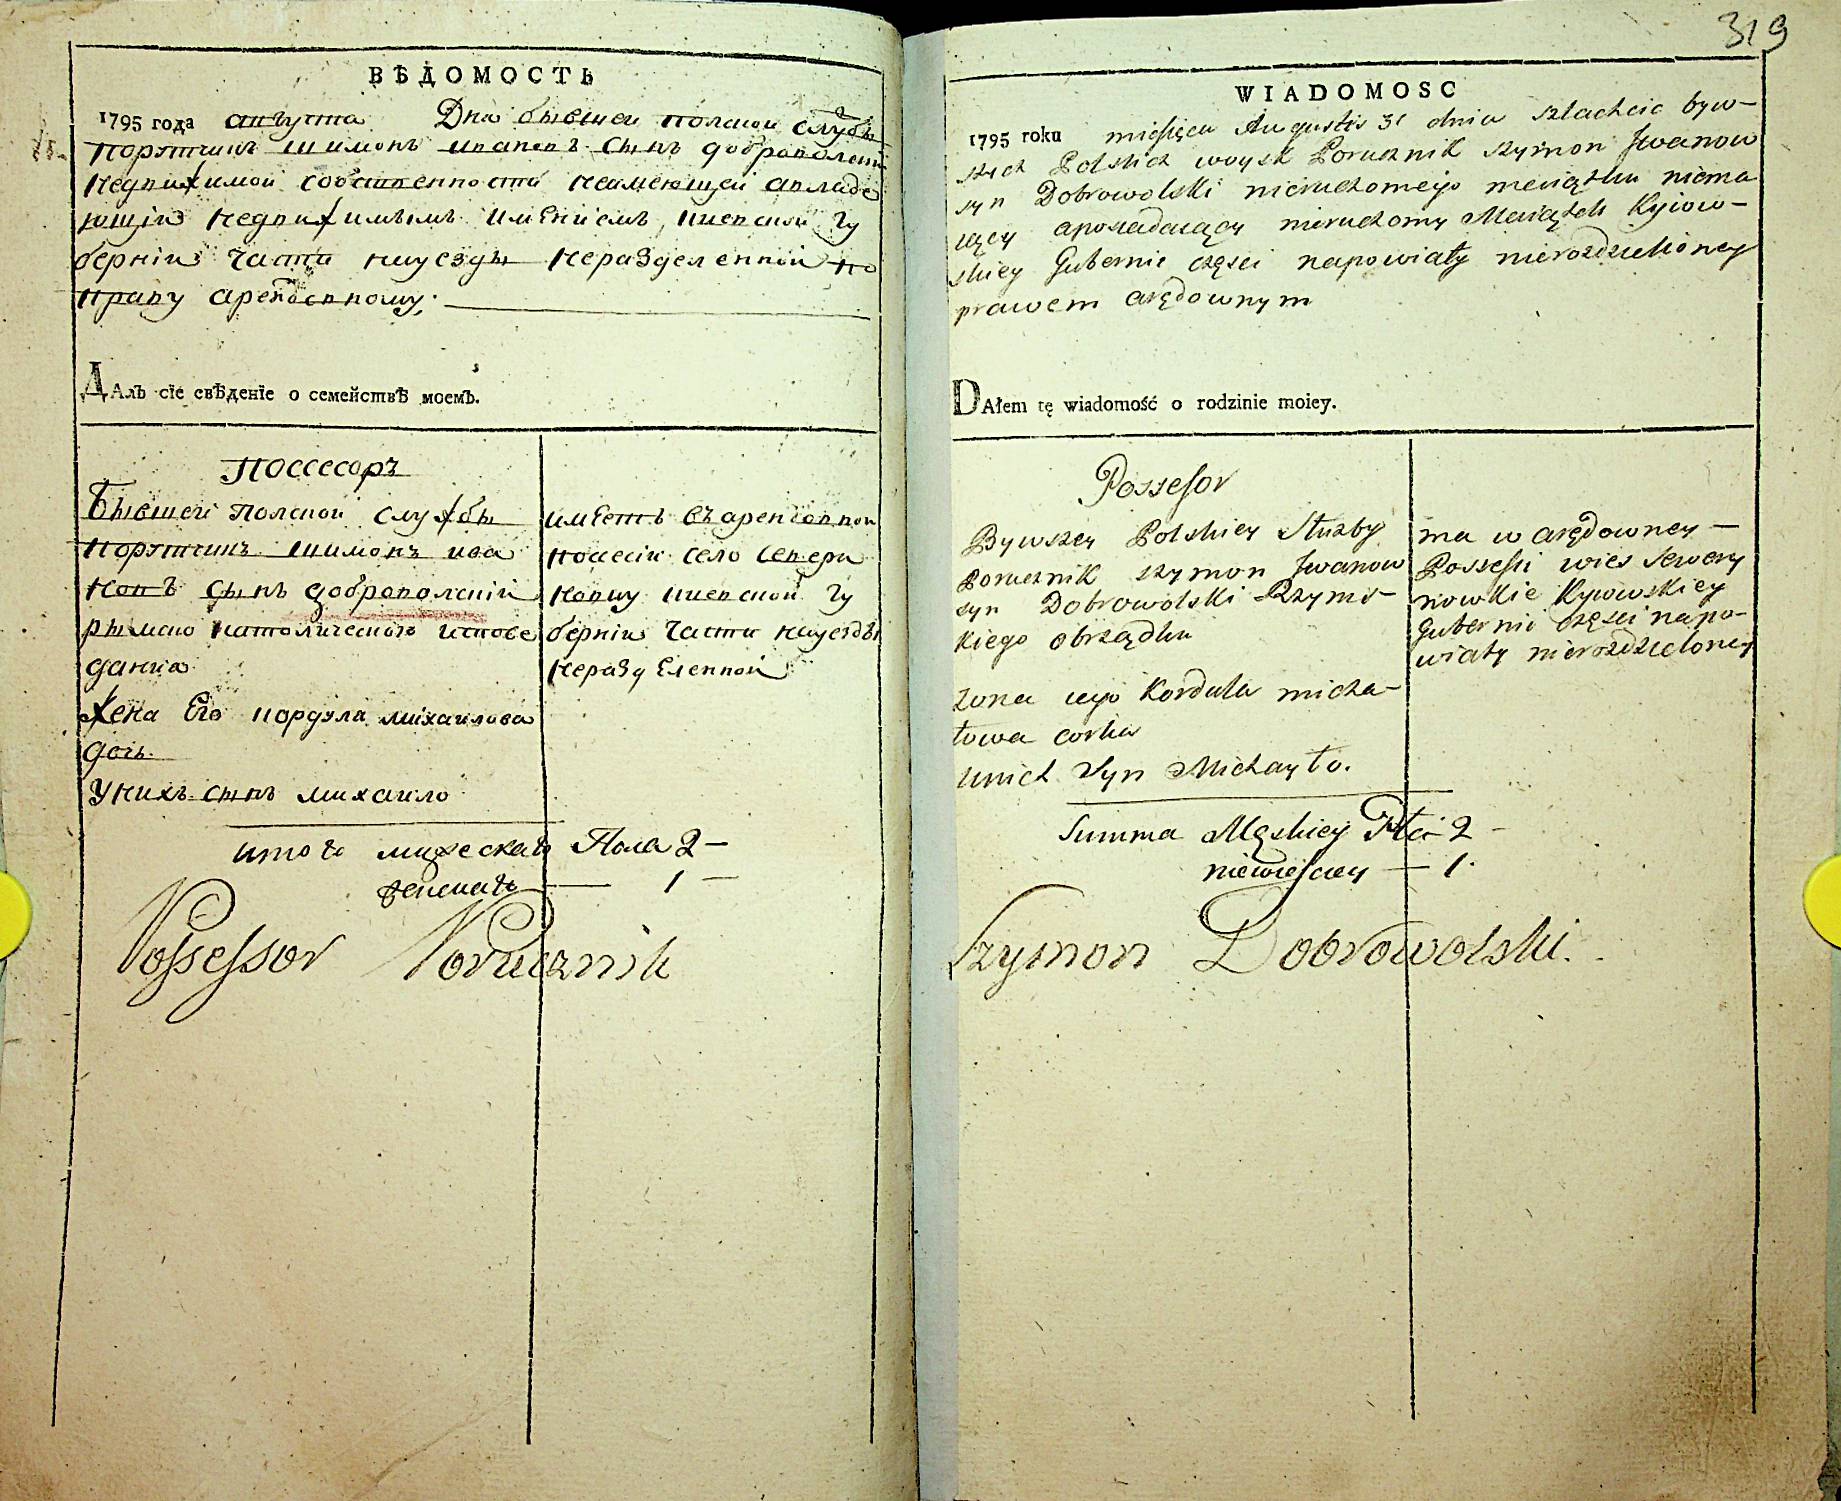 ВѢДОМОСТЬ
1795 года августа Дня бывшей полской службы
порутчикъ шимонъ ивановъ сынъ доброволский
недвижимой собственности неимеющей авладе
ющій недвижимымъ имѣніемъ, киевской гу
берніи части науезды неразделенной по
праву арендовному;
Далъ сїе свѣденїе о семействѣ моемъ.
Поссесоръ
Бывшей полской службы
порутчикъ шимонъ ива
новъ сынъ доброволскій
рымско католического испове
дания
жена Его кордула михаилова
дочь
Унихъ сынъ михаило
имѣетъ въ арендовной
посесіи село севери
новку киевской гу
берніи части науезды
неразделенной
итого мужеска Пола 2 —
женска — 1 —
Possessor Porucznik
319
WIADOMOSC
1795 roku miesięca Augusta 31 dnia szlachcic byw-
szych Polskich woysk Porucznik szymon Jwanow
syn Dobrowolski nieruchomego meiiątku niema
iący aposiadaiący nieruchomy Maiątek Kyiow-
skiey Gubernie części napowiaty nierozdzieloney
prawem arędownym
DAłem tę wiadomość o rodzinie moiey.
Possesor
Bywszey Polskiey Służby
Porucznik szymon Jwanow
syn Dobrowolski Rzyms-
kiego obrządku
żona iego Kordula micha-
łowa corka
unich Syn Michayło.
ma w arędowney —
Possessii wies Sewery
nowkie Kyiowskiey
Gubernii części napo-
wiaty nierozdzieloney
Summa Męskiey Płci 2 —
niewiesciey — 1.
Szymon Dobrowolski.